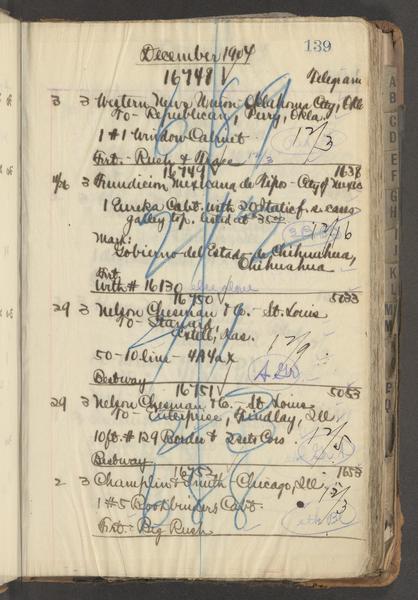 139
December 1904
16748 ✓ Telegram
3 3 Western News Union - Oklahoma City, Okla
To - Republican, Perry, Okla.
1 #1 Window Cabinet
12/3
Frt. - Rush &
16749 ✓ 1638
3 Fundicion Mexicana de Tipos - City of Mexico
1 Eureka Cabt. with 20 Italic f. s. cases
galley top. listed at $35.00
12/16
Mark:
Gobierno del Estado de Chihuahua,
Chihuahua
Frt.
With # 16130
16750 ✓ 5033
29 3 Nelson Chesman & Co. - St. Louis
To - Standard,
Kas.
50 - 10 line - 4A4ax
12/9
Bestway
16751 ✓ 5053
29 3 Nelson Chesman & Co. - St. Louis
To - Enterprise, Findlay, Ill
10 ft. # 129 Border & 2 sets Cors.
12/5
Bestway
16752 1658
2 3 Champlin & Smith - Chicago, Ill
12/3
1 #5 Bookbinders Cabt.
Frt. - Big Rush
A
B
C
D
E
F
G
H
I